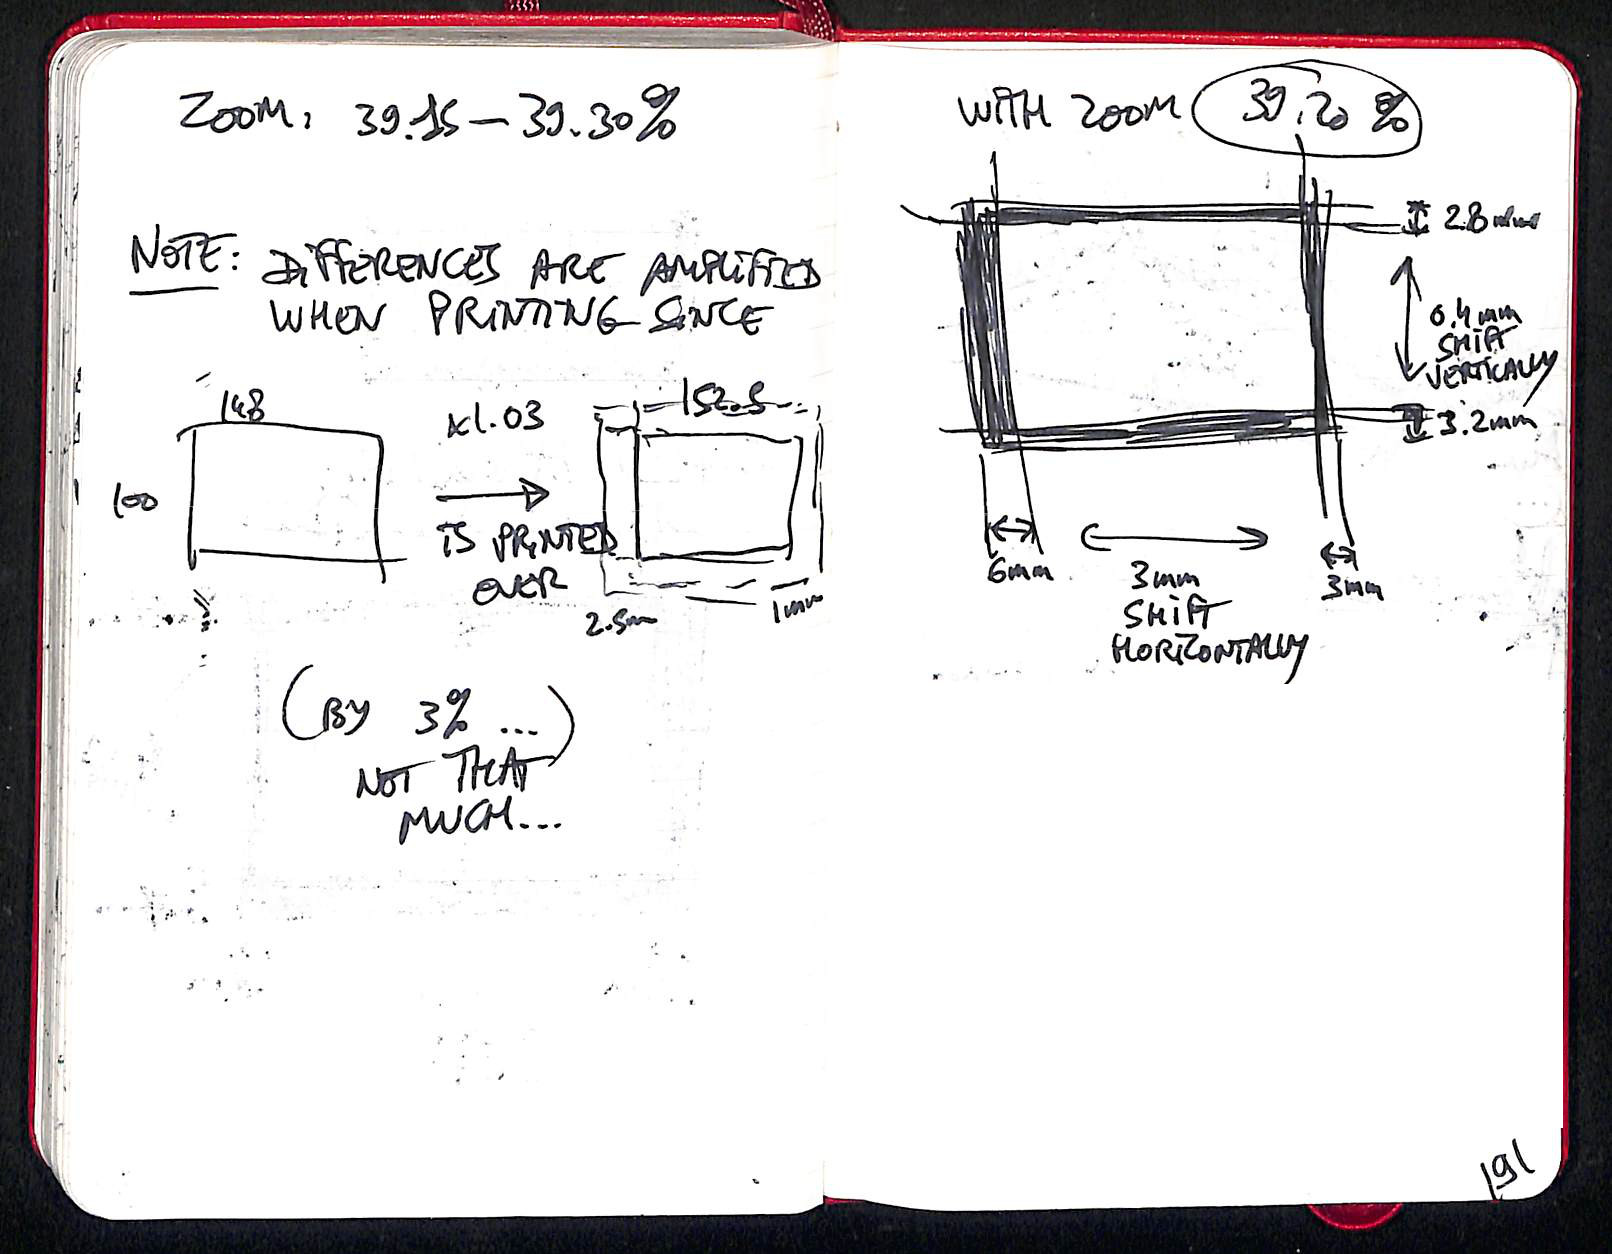 ZOOM: 39.15 – 39.30%
NOTE: DIFFERENCES ARE AMPLIFIED
WHEN PRINTING SINCE
148
x1.03
152.5
100
IS PRINTED
OVER
2.5mm
1mm
(BY 3% ...)
NOT THAT
MUCH...
WITH ZOOM 39.20 %
2.8mm
0.4mm
SHIFT
VERTICALLY
3.2mm
6mm
3mm
SHIFT
HORIZONTALLY
3mm
191